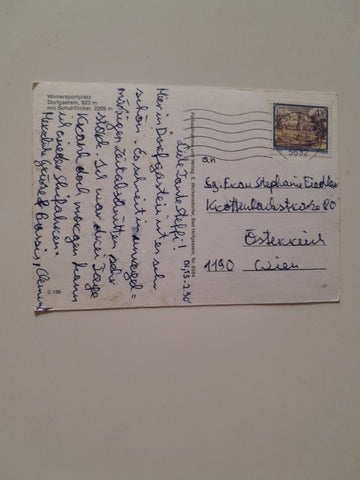 Wintersportplatz
Dorfgastein, 823 m
mit Schuhflicker, 2209 m
13.2.90
Liebe Tante Steffi!
Hier in Dorfgastein ist es sehr
schön. Es schneit in unregel=
mäßigen Zeitabständen sehr
stark. Ich war drei Tage
krank doch morgen kann
ich wieder Skifahren.
Herzliche Grüße & Bussis,
5632
An
Sg. Frau Stephanie Fiedler
Krottenbachstrasse
Österreich
1190 Wien
D 139